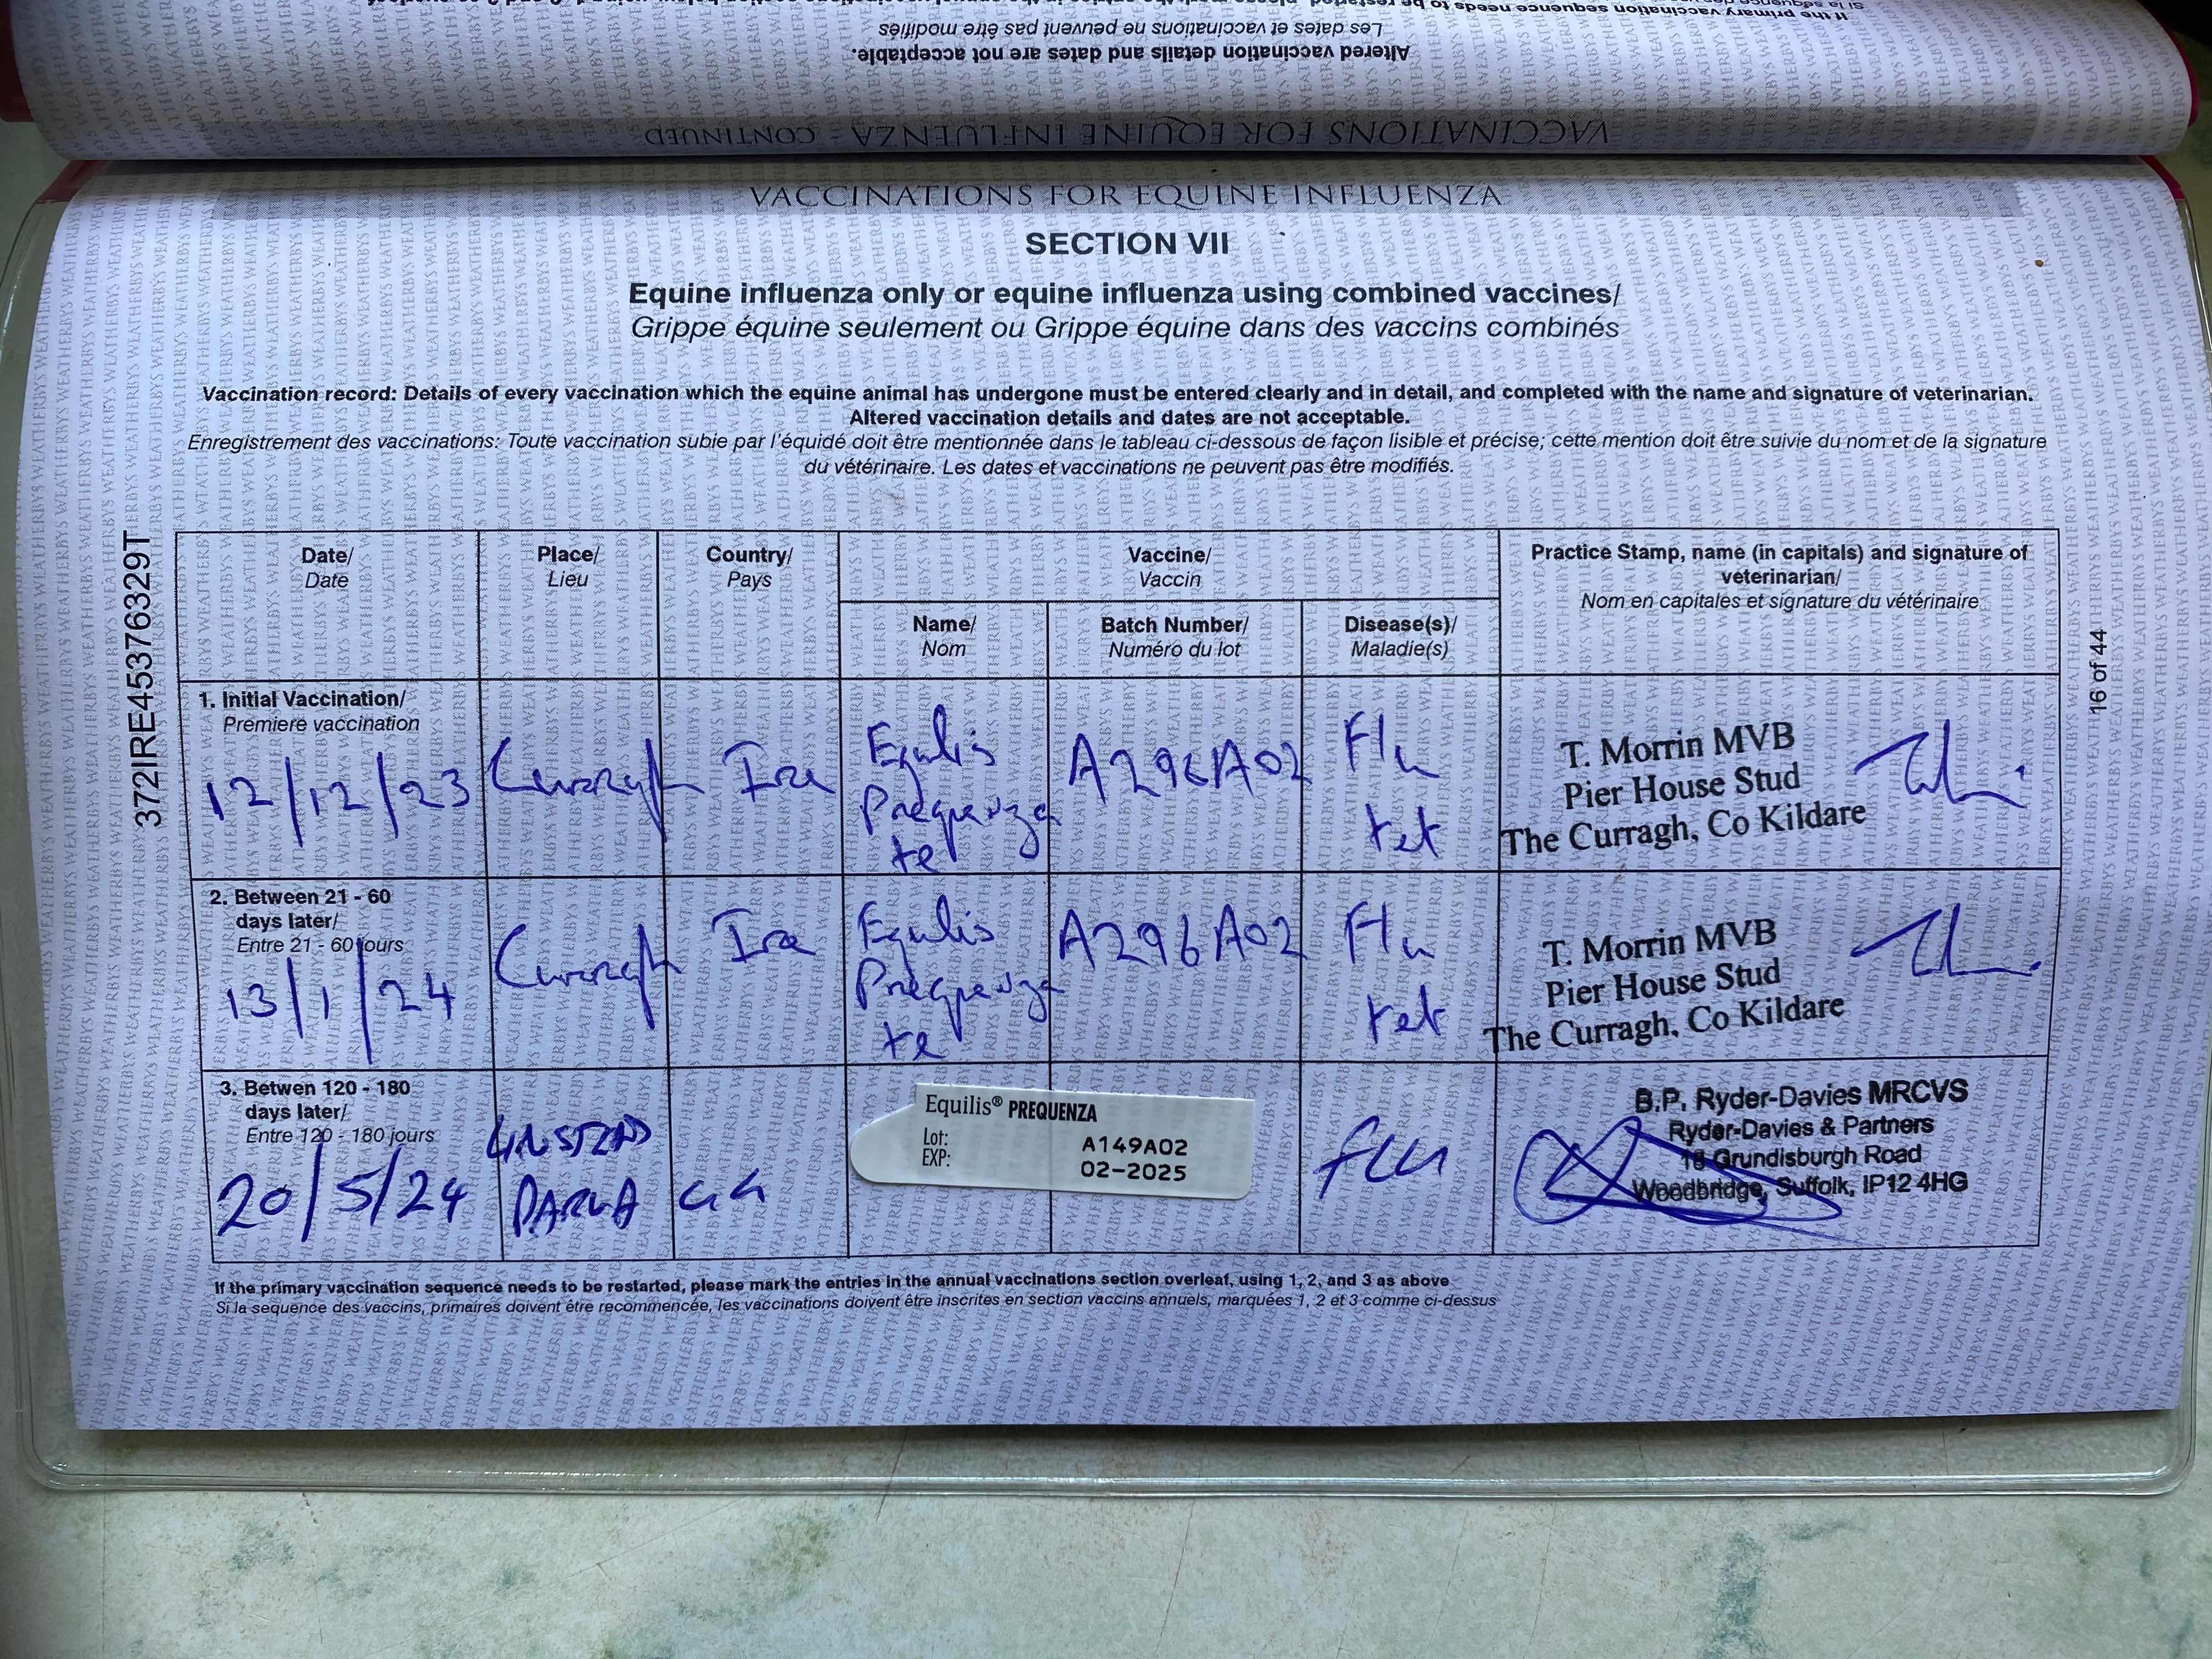 Les dates et vaccinations ne peuvent pas être modifiés
Altered vaccination details and dates are not acceptable.
VACCINATIONS FOR EQUINE INFLUENZA - CONTINUED
VACCINATIONS FOR EQUINE INFLUENZA
SECTION VII
Equine influenza only or equine influenza using combined vaccines/
Grippe équine seulement ou Grippe équine dans des vaccins combinés
Vaccination record: Details of every vaccination which the equine animal has undergone must be entered clearly and in detail, and completed with the name and signature of veterinarian.
Altered vaccination details and dates are not acceptable.
Enregistrement des vaccinations: Toute vaccination subie par l'équidé doit être mentionnée dans le tableau ci-dessous de façon lisible et précise; cette mention doit être suivie du nom et de la signature
du vétérinaire. Les dates et vaccinations ne peuvent pas être modifiés.
372IRE45376329T
16 of 44
Date/
Date
Place/
Lieu
Country/
Pays
Vaccine/
Vaccin
Name/
Nom
Batch Number/
Numéro du lot
Disease(s)/
Maladie(s)
Practice Stamp, name (in capitals) and signature of
veterinarian/
Nom en capitales et signature du vétérinaire
1. Initial Vaccination/
Premiere vaccination
12/12/23
Curragh
Ire
Equilis
Prequenza
te
A296A02
Flu
tet
T. Morrin MVB
Pier House Stud
The Curragh, Co Kildare
2. Between 21 - 60
days later/
Entre 21 - 60 jours
13/1/24
Curragh
Ire
Equilis
Prequenza
te
A296A02
Flu
tet
T. Morrin MVB
Pier House Stud
The Curragh, Co Kildare
3. Betwen 120 - 180
days later/
Entre 120 - 180 jours
20/5/24
Equilis® PREQUENZA
Lot: A149A02
EXP: 02-2025
flu
B.P. Ryder-Davies MRCVS
Ryder-Davies & Partners
16 Grundisburgh Road
Woodbridge, Suffolk, IP12 4HG
If the primary vaccination sequence needs to be restarted, please mark the entries in the annual vaccinations section overleaf, using 1, 2, and 3 as above
Si la sequence des vaccins, primaires doivent être recommencée, les vaccinations doivent être inscrites en section vaccins annuels, marquées 1, 2 et 3 comme ci-dessus